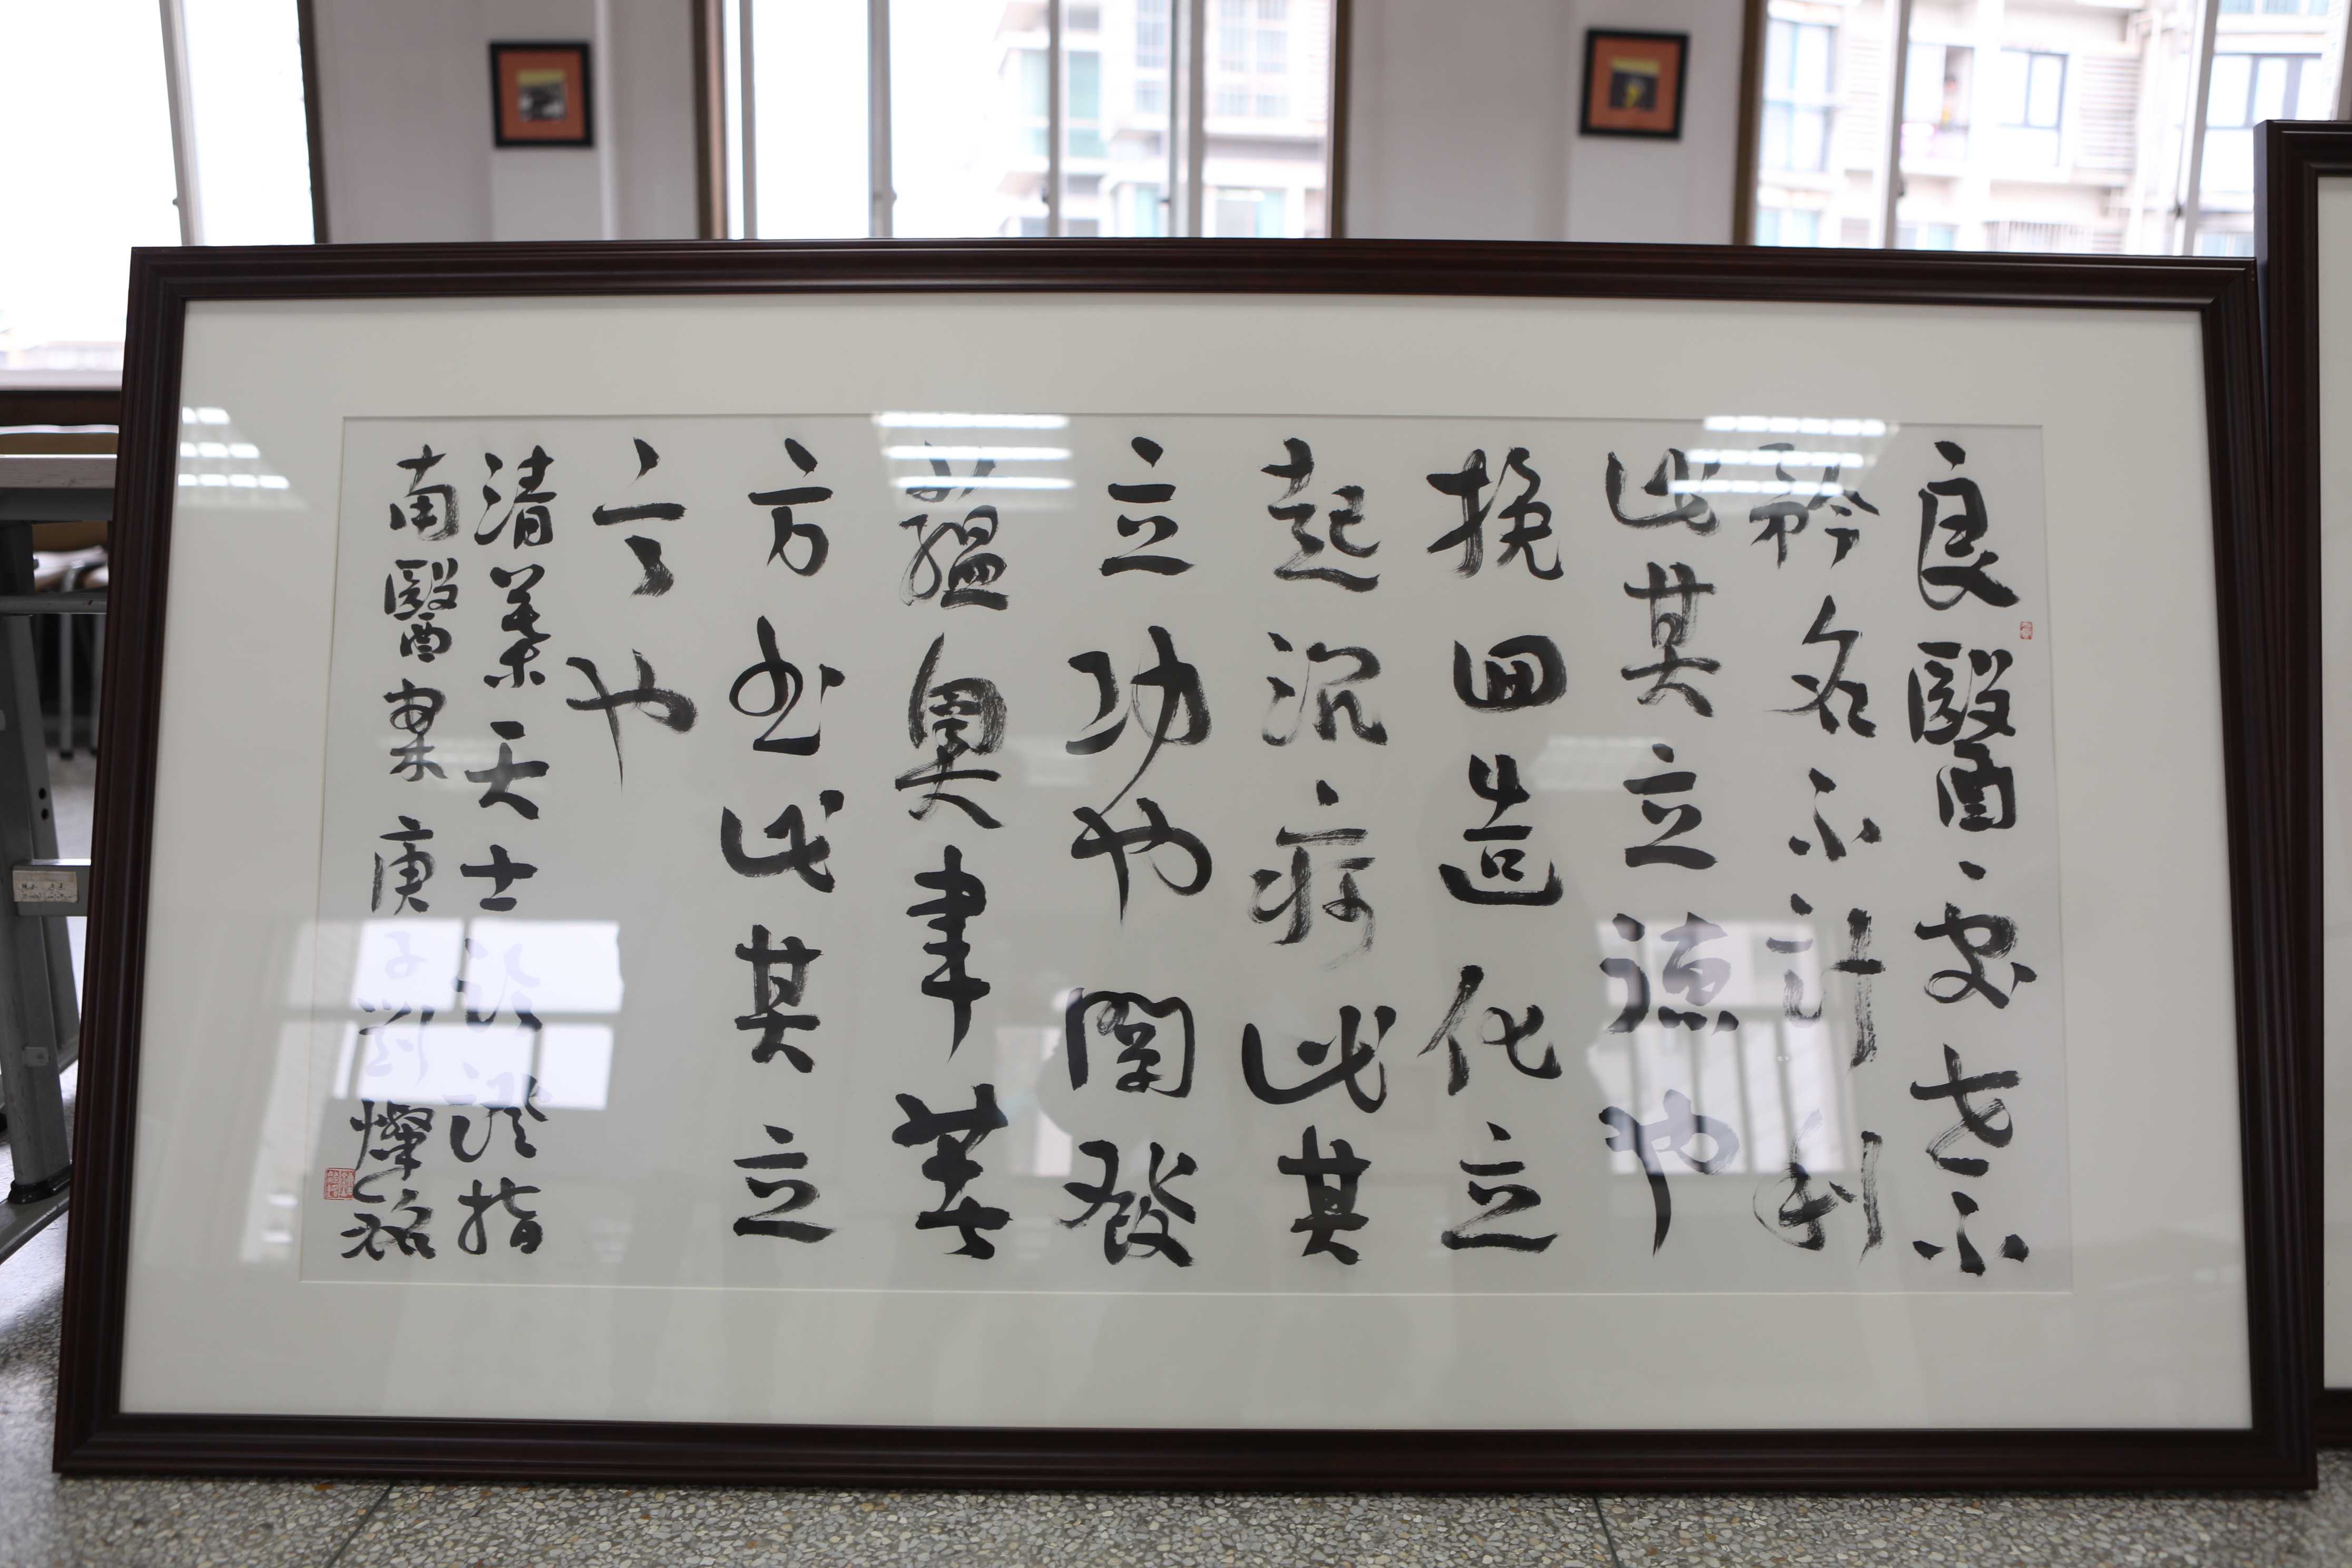 良醫處世不
矜名不計利
此其立德也
挽回造化立
起沉疴此其
立功也闡發
蘊奧聿著
方書此其立
言也
清葉天士 證指
南醫案庚子 燦銘